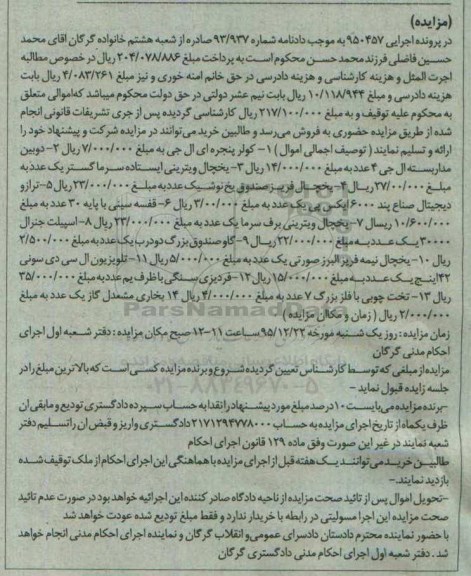 (مزایده)
در پرونده اجرایی ۹۵۰۴۵۷ به موجب دادنامه شماره ۹۳/۹۳۷ صادره از شعبه هشتم خانواده گرگان اقای محمد
حسین فاضلی فرزند محمد حسن محکوم است به پرداخت مبلغ ۲۰۴/۰۷۸/۸۸۶ ریال در خصوص مطالبه
اجرت المثل و هزینه کارشناسی و هزینه دادرسی در حق خانم امنه خوری و نیز مبلغ ۴/۰۸۳/۲۶۱ ریال بابت
هزینه دادرسی و مبلغ ۱۰/۱۱۸/۹۴۴ ریال بابت نیم عشر دولتی در حق دولت محکوم میباشد که اموالی متعلق
به محکوم علیه توقیف و به مبلغ ۲۱۷/۱۰۰/۰۰۰ ریال کارشناسی گردیده پس از جری تشریفات قانونی انجام
شده از طریق مزایده حضوری به فروش می رسد و طالبین خرید می توانند در مزایده شرکت و پیشنهاد خود را
ارائه و تسلیم نمایند ( توصیف اجمالی اموال ) ۱- کولر پنجره ای ال جی به مبلغ ۷/۰۰۰/۰۰۰ ریال ۲- دوربین
مداربسته ال جی ۴ عدد به مبلغ ۱۴/۰۰۰/۰۰۰ ریال ۳- یخچال ویترینی ایستاده سرما گستر یک عدد به
مبلغ ۲۷/۰۰۰/۰۰۰ ریال ۴- یخچال فریزر صندوق یخ نوشیک عدد به مبلغ ۲۳/۰۰۰/۰۰۰ ریال ۵- ترازو
دیجیتال صناع پند ۶۰۰۰ ایکس بی یک عدد به مبلغ ۳/۰۰۰/۰۰۰ ریال ۶- قفسه سینی با پایه ۳۰ عدد به مبلغ
۱۰/۶۰۰/۰۰۰ ریسال ۷- یخچال ویترینی برف سرما یک عدد به مبلغ ۲۳/۰۰۰/۰۰۰ ریال ۸- اسپیلت جنرال
۳۰۰۰۰ یک عدد به مبلغ ۲۲/۰۰۰/۰۰۰ ریال ۹- گاو صندوق بزرگ دو درب یک عدد به مبلغ ۲/۵۰۰/۰۰۰
ریال ۱۰- یخچال نیمه فریزر البرز صورتی یک عدد به مبلغ ۵/۰۰۰/۰۰۰ ریال ۱۱- تلویزیون ال سی دی سونی
۴۲ اینچ یک عدد به مبلغ ۱۵/۰۰۰/۰۰۰ ریال ۱۲- فر دیزی سنگی با ظرف یم عدد به مبلغ ۳۵/۰۰۰/۰۰۰
ریال ۱۳- تخت چوبی با فلز بزرگ ۷ عدد به مبلغ ۴/۰۰۰/۰۰۰ ریال ۱۴ بخاری مشعدل گاز یک عدد به مبلغ
۲/۰۰۰/۰۰۰ ریال ( زمان و مکان مزایده )
زمان مزایده : روز یک شنبه مورخه ۹۵/۱۲/۲۲ ساعت ۱۱-۱۲ صبح مکان مزایده : دفتر شعبه اول اجرای
احکام مدنی گرگان
مزایده از مبلغی که توسط کارشناس تعیین گردیده شروع و برنده مزایده کسی است که بالاترین مبلغ را در
جلسه زایده قبول نماید -
-برنده مزایده می بایست ۱۰ درصد مبلغ مورد پیشنهاد را نقدا به حساب سپرده دادگستری تودیع و مابقی ان
ظرف یکماه از تاریخ اجرای مزایده به حساب ۲۱۷۱۲۹۴۷۷۸۰۰۰ دادگستری واریز و قبض ان را تسلیم دفتر
شعبه نمایند در غیر این صورت وفق ماده ۱۲۹ قانون اجرای احکام
طالبین خرید می توانند یک هفته قبل از اجرای مزایده با هماهنگی این اجرای احکام از ملک توقیف شده
بازدید نمایند.-
-تحویل اموال پس از تائید صحت مزایده از ناحیه دادگاه صادر کننده این اجرائیه خواهد بود در صورت عدم تائید
صحت مزایده این اجرا مسولیتی در رابطه با خریدار ندارد و فقط مبلغ تودیع شده عودت خواهد شد
با حضور نماینده محترم دادستان دادسرای عمومی و انقلاب گرگان و نماینده اجرای احکام مدنی انجام خواهد
شد . دفتر شعبه اول اجرای احکام مدنی دادگستری گرگان